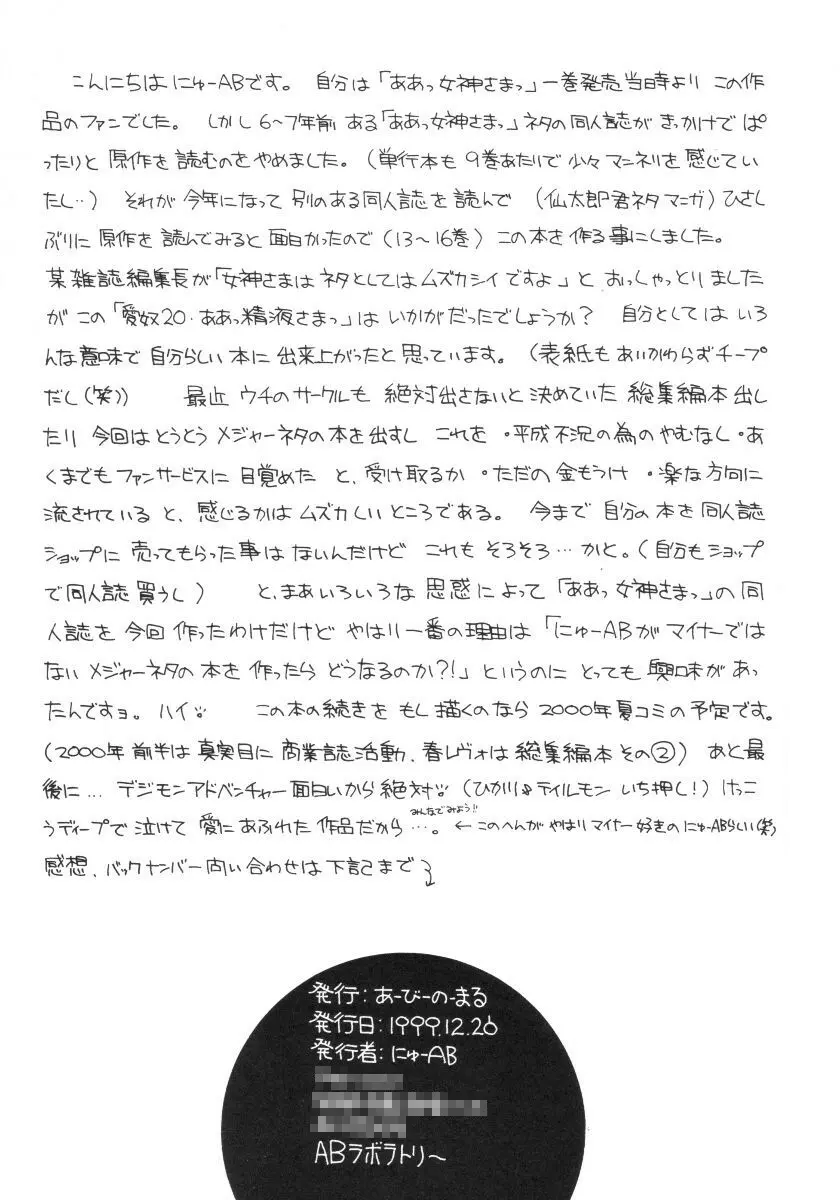 こんにちは にゅーABです。 自分は「ああっ女神さまっ」一巻発売当時より この作
品のファンでした。 しかし 6〜7年前 ある「ああっ女神さまっ」ネタの同人誌が きっかけで ぱ
ったりと 原作を 読むのをやめました。(単行本も 9巻あたりで 少々 マンネリを感じてい
たし‥) それが 今年になって 別のある同人誌を 読んで (仙太郎君ネタ マンガ)ひさし
ぶりに 原作を 読んでみると 面白かったので(13〜16巻) この本を 作る事にしました。
某雑誌編集長が「女神さまは ネタとしては ムズカシイですよ」と おっしゃっとりました
が この「愛奴20・ああっ精液さまっ」は いかがだったでしょうか? 自分としては いろ
んな意味で 自分らしい 本に 出来上がったと 思っています。(表紙も あいかわらず チープ
だし(笑)) 最近 ウチのサークルも 絶対出さないと 決めていた 総集編本 出し
たり 今回は とうとう メジャーネタの本を 出すし これを ・平成不況の為のやむなし ・あ
くまでも ファンサービスに 目覚めた と、受け取るか ・ただの 金もうけ ・楽な方向に
流されている と、感じるかは ムズカしい ところである。 今まで 自分の本を 同人誌
ショップに 売ってもらった事は ないんだけど これも そろそろ…かと。(自分も ショップ
で 同人誌 買うし) と、まあ いろいろな 思惑によって「ああっ女神さまっ」の 同
人誌を 今回 作ったわけだけど やはり 一番の理由は「にゅーABが マイナーでは
ない メジャーネタの 本を 作ったら どうなるのか?!」というのに とっても 興味があ っ
たんですョ。ハイ。 この本の続きを もし描くのなら 2000年夏コミの予定です。
(2000年 前半は 真実目に 商業誌活動、春レヴォは 総集編本 その②) あと最
後に… デジモンアドベンチャー 面白いから 絶対!!(ひかり&テイルモン いち押し!) けっこ
うディープで 泣けて 愛にあふれた 作品だから…。 みんなでみよう!! ← このへんが やはり マイナー好きの にゅーABらしい(笑)
感想、バックナンバー問い合わせは 下記まで
発行:あーびーのーまる
発行日:1999.12.26
発行者:にゅーAB
ABラボラトリ〜